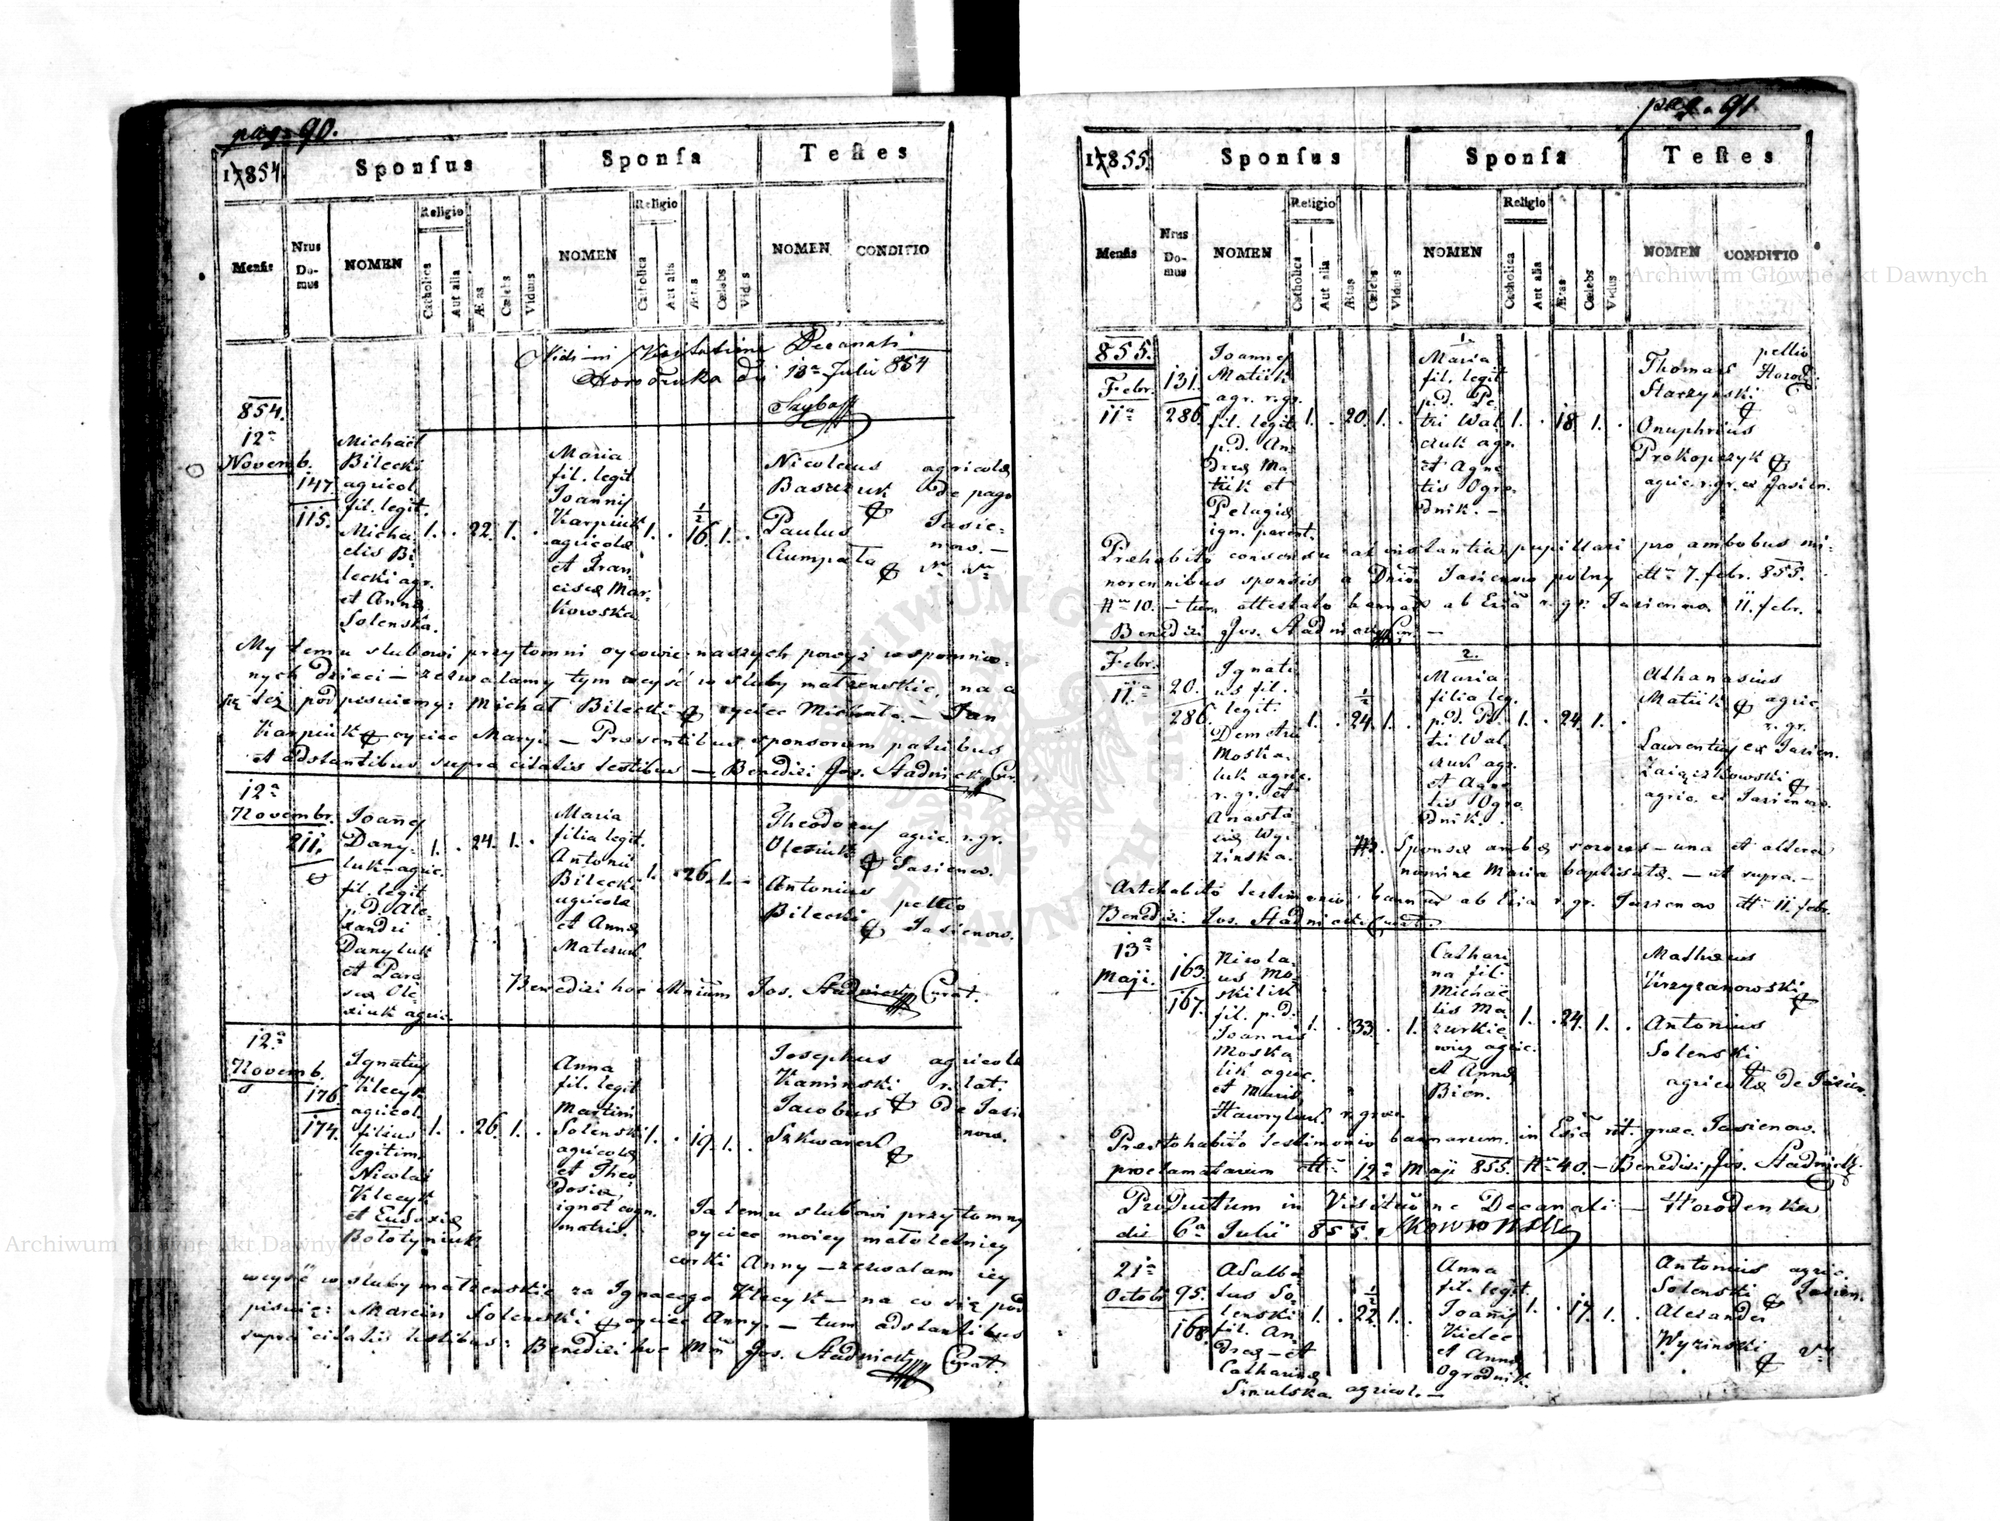 pag. 90.
17854.
Sponſus
Sponſa
Teſtes
Menſis
Nrus Do-mus
NOMEN
Religio
Catholica
Aut alia
Ætas
Cœlebs
Viduus
NOMEN
Religio
Catholica
Aut alia
Ætas
Cœlebs
Vidus
NOMEN
CONDITIO
Decanali
Horodenka die 18a Julii 854
854.
12a
Novemb.
147.
115.
Michaël
Bilecki
agricol.
fil. legit.
Micha-
elis Bi-
lecki agr.
et Annæ
Solenska.
1. . 22. 1. .
Maria
fil. legit
Joannis
Karpiuk
agricolæ
et Fran
ciscæ Mar-
kowska
1. . 16. 1/2 1. .
Nicolaus agricolæ
Basczuk de pago
Paulus Jasie-
now. —
My temu slubowi przytomni oycowie naszych powyż wspomnio-
nych dzieci — zezwalamy tym weyść w sluby malżenskie, na co
się też podpisuiemy: Michał Bilecki oyciec Michała. — Jan
Karpiuk oyciec Maryi. — Præsentibus sponsorum patribus
et adstantibus supra citatis testibus — Benedixi Jos. Stadnicki Cur.
12a
Novembr.
211.
Joannes
Dany-
luk — agric.
fil. legit
p. d. Ale-
xandri
Danyluk
et Para
sciæ Ole
xiuk agric.
1. . 24. 1. .
Maria
filia legit.
Antonii
Bilecki
agricolæ
et Annæ
Matczuk.
1. . 26. 1. -
Theodorus agric. r. gr.
Olexiuk Jasienow.
Antonius pellio
Bilecki Jasienow.
Benedixi hoc Mnium Jos. Stadnicki Curat.
12a
Novemb.
176.
174.
Ignatius
Klecyk
agricol.
filius
legitim.
Nicolai
Klecyk
et Eudoxiæ
Bolotyniuk
1. . 26. 1. .
Anna
fil. legit
Martini
Solenski
agricolæ
et Theo
dosiæ
ignot. cogn.
matris.
1. . 19. 1. .
Josephus agricolæ
Kaminski r. lat.
Jacobus de Jasie
Szkwarek now.
Ja temu slubowi przytomny
oyciec moiey małoletniey
corki Anny — zezwalam iey
weyść w sluby malżenskie za Ignacego Klecyk — na co się pod
pisuię: Marcin Solenski oyciec Anny. — tum adstantibus
supra citatis testibus: Benedixi hoc Mm Jos. Stadnicki Curat.
pag. 91.
17855.
Sponſus
Sponſa
Teſtes
Menſis
Nrus Do-mus
NOMEN
Religio
Catholica
Aut alia
Ætas
Cœlebs
Viduus
NOMEN
Religio
Catholica
Aut alia
Ætas
Cœlebs
Vidus
NOMEN
CONDITIO
855.
Febr.
11a
131.
286.
Joannes
Matiik
agr. r. gr.
fil. legit.
p. d. An-
dreæ Ma-
tiik et
Pelagiæ
ign. parent.
1. . 20. 1. .
1.
Maria
fil. legit
p. d. Pe-
tri Wal
czuk agr.
et Agne
tis Ogro-
dnik. -
1. . 18 1. .
Thomas pellio
Starzynski Horod.
Onuphrius
Prokopczyk
agric. r. gr. ex Jasien.
Præhabito consensu ab instantia pupillari pro ambobus mi-
norennibus sponsis a Dnio Jasienow polny dtto 7. febr. 855.
Nro 10. — tum attestato bannor. ab Ecia r. gr. Jasienow 11. febr.
Benedixi Jos. Stadnicki Cur. —
Febr.
11a
20.
286.
Ignati-
us fil.
legit.
Demetrii
Moska-
luk agric.
r. gr. et
Anasta-
siæ Wy-
zinska.
1. . 24. 1/2 1. .
2.
Maria
filia leg.
p. d. Pe-
tri Wal-
czuk agr.
et Agne
tis Ogro-
dnik.
1. . 24. 1. .
Athanasius
Matiik agric.
r. gr.
Laurentius ex Jasien.
Zaiączkowski
agric. ex Jasienow.
NB. Sponsæ ambæ sorores — una et altera
nomine Maria baptisatæ. — ut supra. —
Antehabito testimonio bannor. ab Ecia r. gr. Jasienow dtto 11. febr.
Benedixi Jos. Stadnicki Curat.
13a
Maji.
163.
167.
Nicola-
us Mo-
skilik
fil. p. d.
Joannis
Moska
lik agric.
et Mariæ
Hawryluk r. græc.
1. . 33. . 1.
Cathari
na fil.
Michae
lis Ma
zurkie
wicz agric.
et Annæ
Bien.
1. . 24. 1. .
Mathæus
Krzyzanowski
Antonius
Solenski
agricolæ de Jasien.
Præhabito testimonio bannorum in Ecia rit. græc. Jasienow.
proclamatorum dtto 12a Maji 855. Nro 40. — Benedixi Jos. Stadnicki
Productum in Visitatione Decanali — Horodenka
die 6a Julii 855.
21a
Octobr.
95.
168.
Adalber
tus So-
lenski
fil. An-
dreæ — et
Catharinæ
Sikulska agricol. —
1. . 22. 1/2 1. .
Anna
fil. legit.
Joannis
Kielec
et Annæ
Ogrodnik.
1. . 17. 1. .
Antonius agric.
Solenski Jasien.
Alexander
Wyzinski
Archiwum Główne Akt Dawnych
Archiwum Główne Akt Dawnych
ARCHIWUM GŁÓWNE AKT DAWNYCH